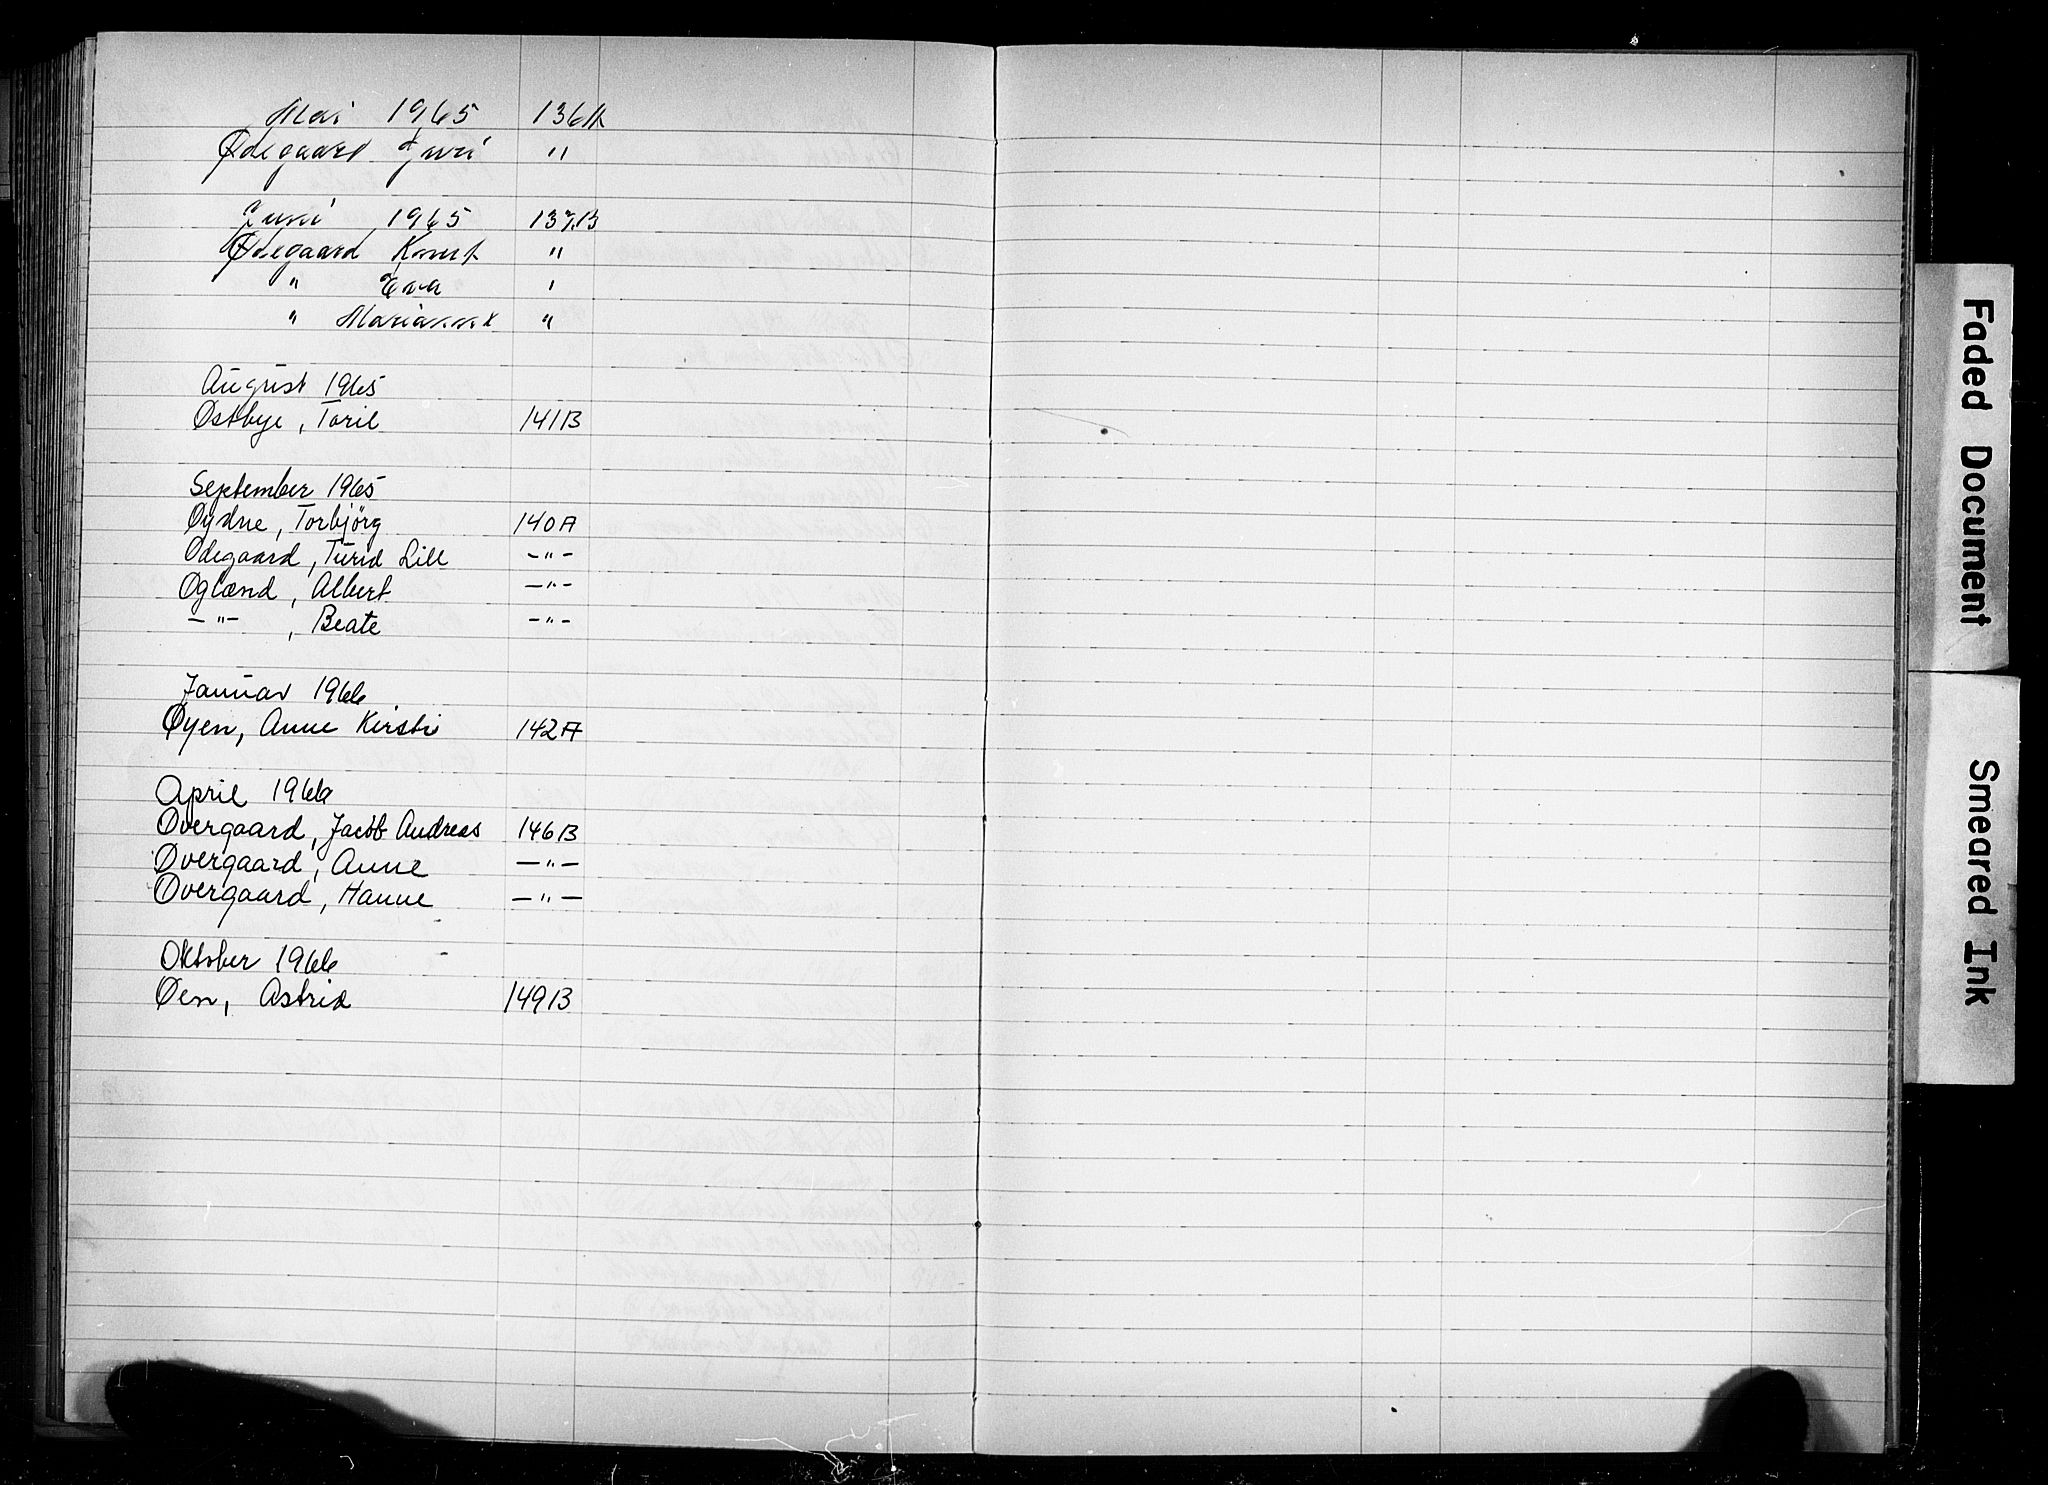 Mai 1965 136A
Ødegaard "
Juni 1965 137B
Ødegaard Knut "
" Eva "
" Marianne "
August 1965
Østbye, Toril 141B
September 1965
Øydne, Torbjörg 140A
Ødegaard, Turid Lill —"—
Øgland, Albert —"—
—"— , Beate —"—
Januar 1966
Øyen, Anne Kirsti 142A
April 1966
Øvergaard, Jacob Andreas 146B
Øvergaard, Anne —"—
Øvergaard, Hanne —"—
Oktober 1966
Øen, Astrid 149B
Faded Document
Smeared Ink